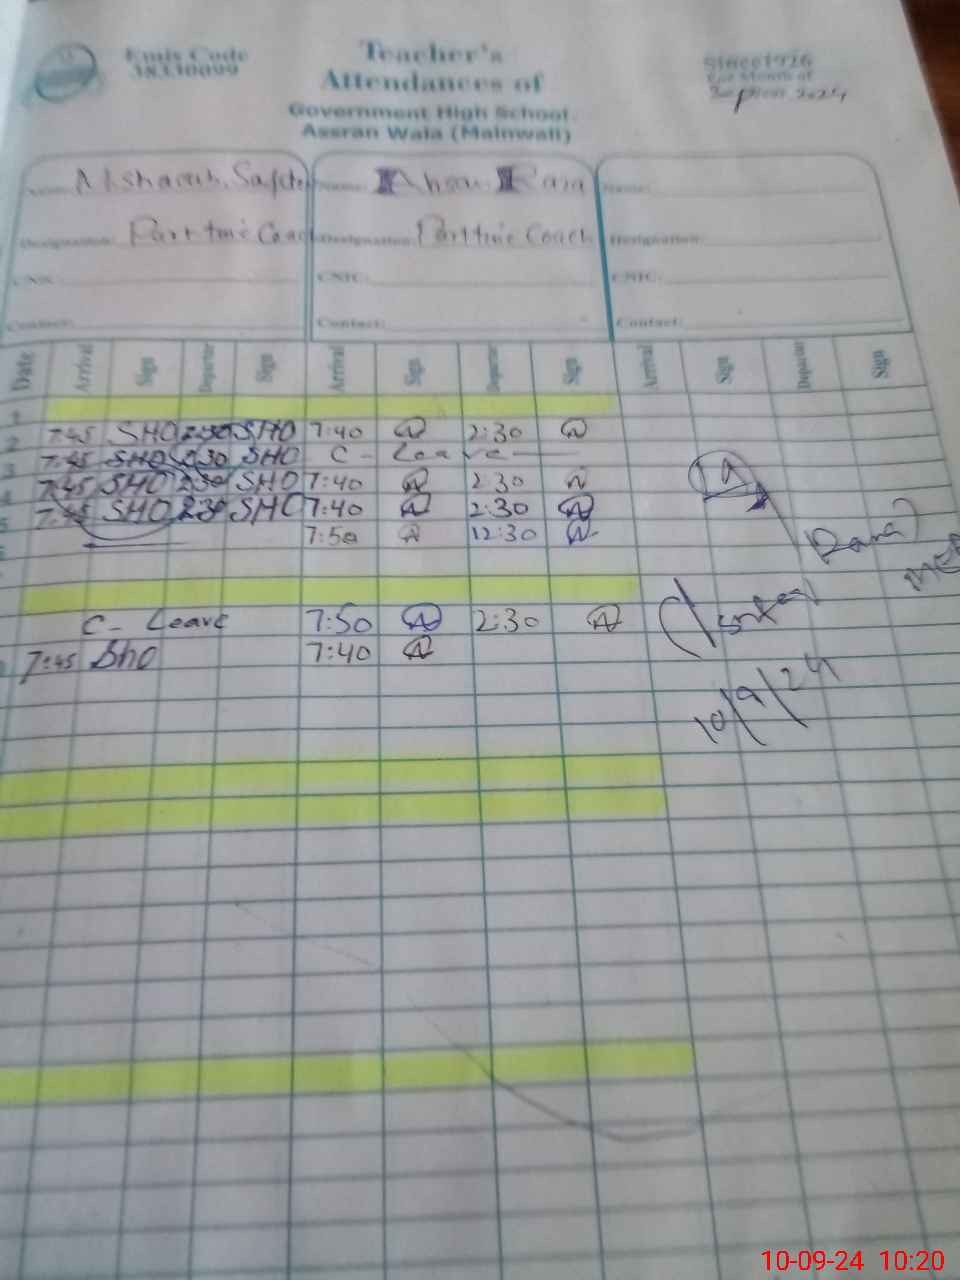 Emis Code
38330099
Teacher's
Attendances of
Government High School
Assran Wala (Mainwali)
Since 1926
For Month of
2024
Name: Name: Ahsan Raza Name:
Designation: Part time Coach Designation: Part time Coach Designation:
CNIC: CNIC: CNIC:
Contact: Contact: Contact:
Date Arrival Sign Departur Sign Arrival Sign Departur Sign Arrival Sign Departur Sign
1
2 7:45 SHO 2:30 SHO 7:40 2:30
3 7:45 SHO 2:30 SHO C - Leave
4 7:45 SHO 2:30 SHO 7:40 2:30
5 7:45 SHO 2:30 SHO 7:40 2:30
7:50 12:30
C - Leave 7:50 2:30
7:45 Sho 7:40
10/9/24
10-09-24 10:20